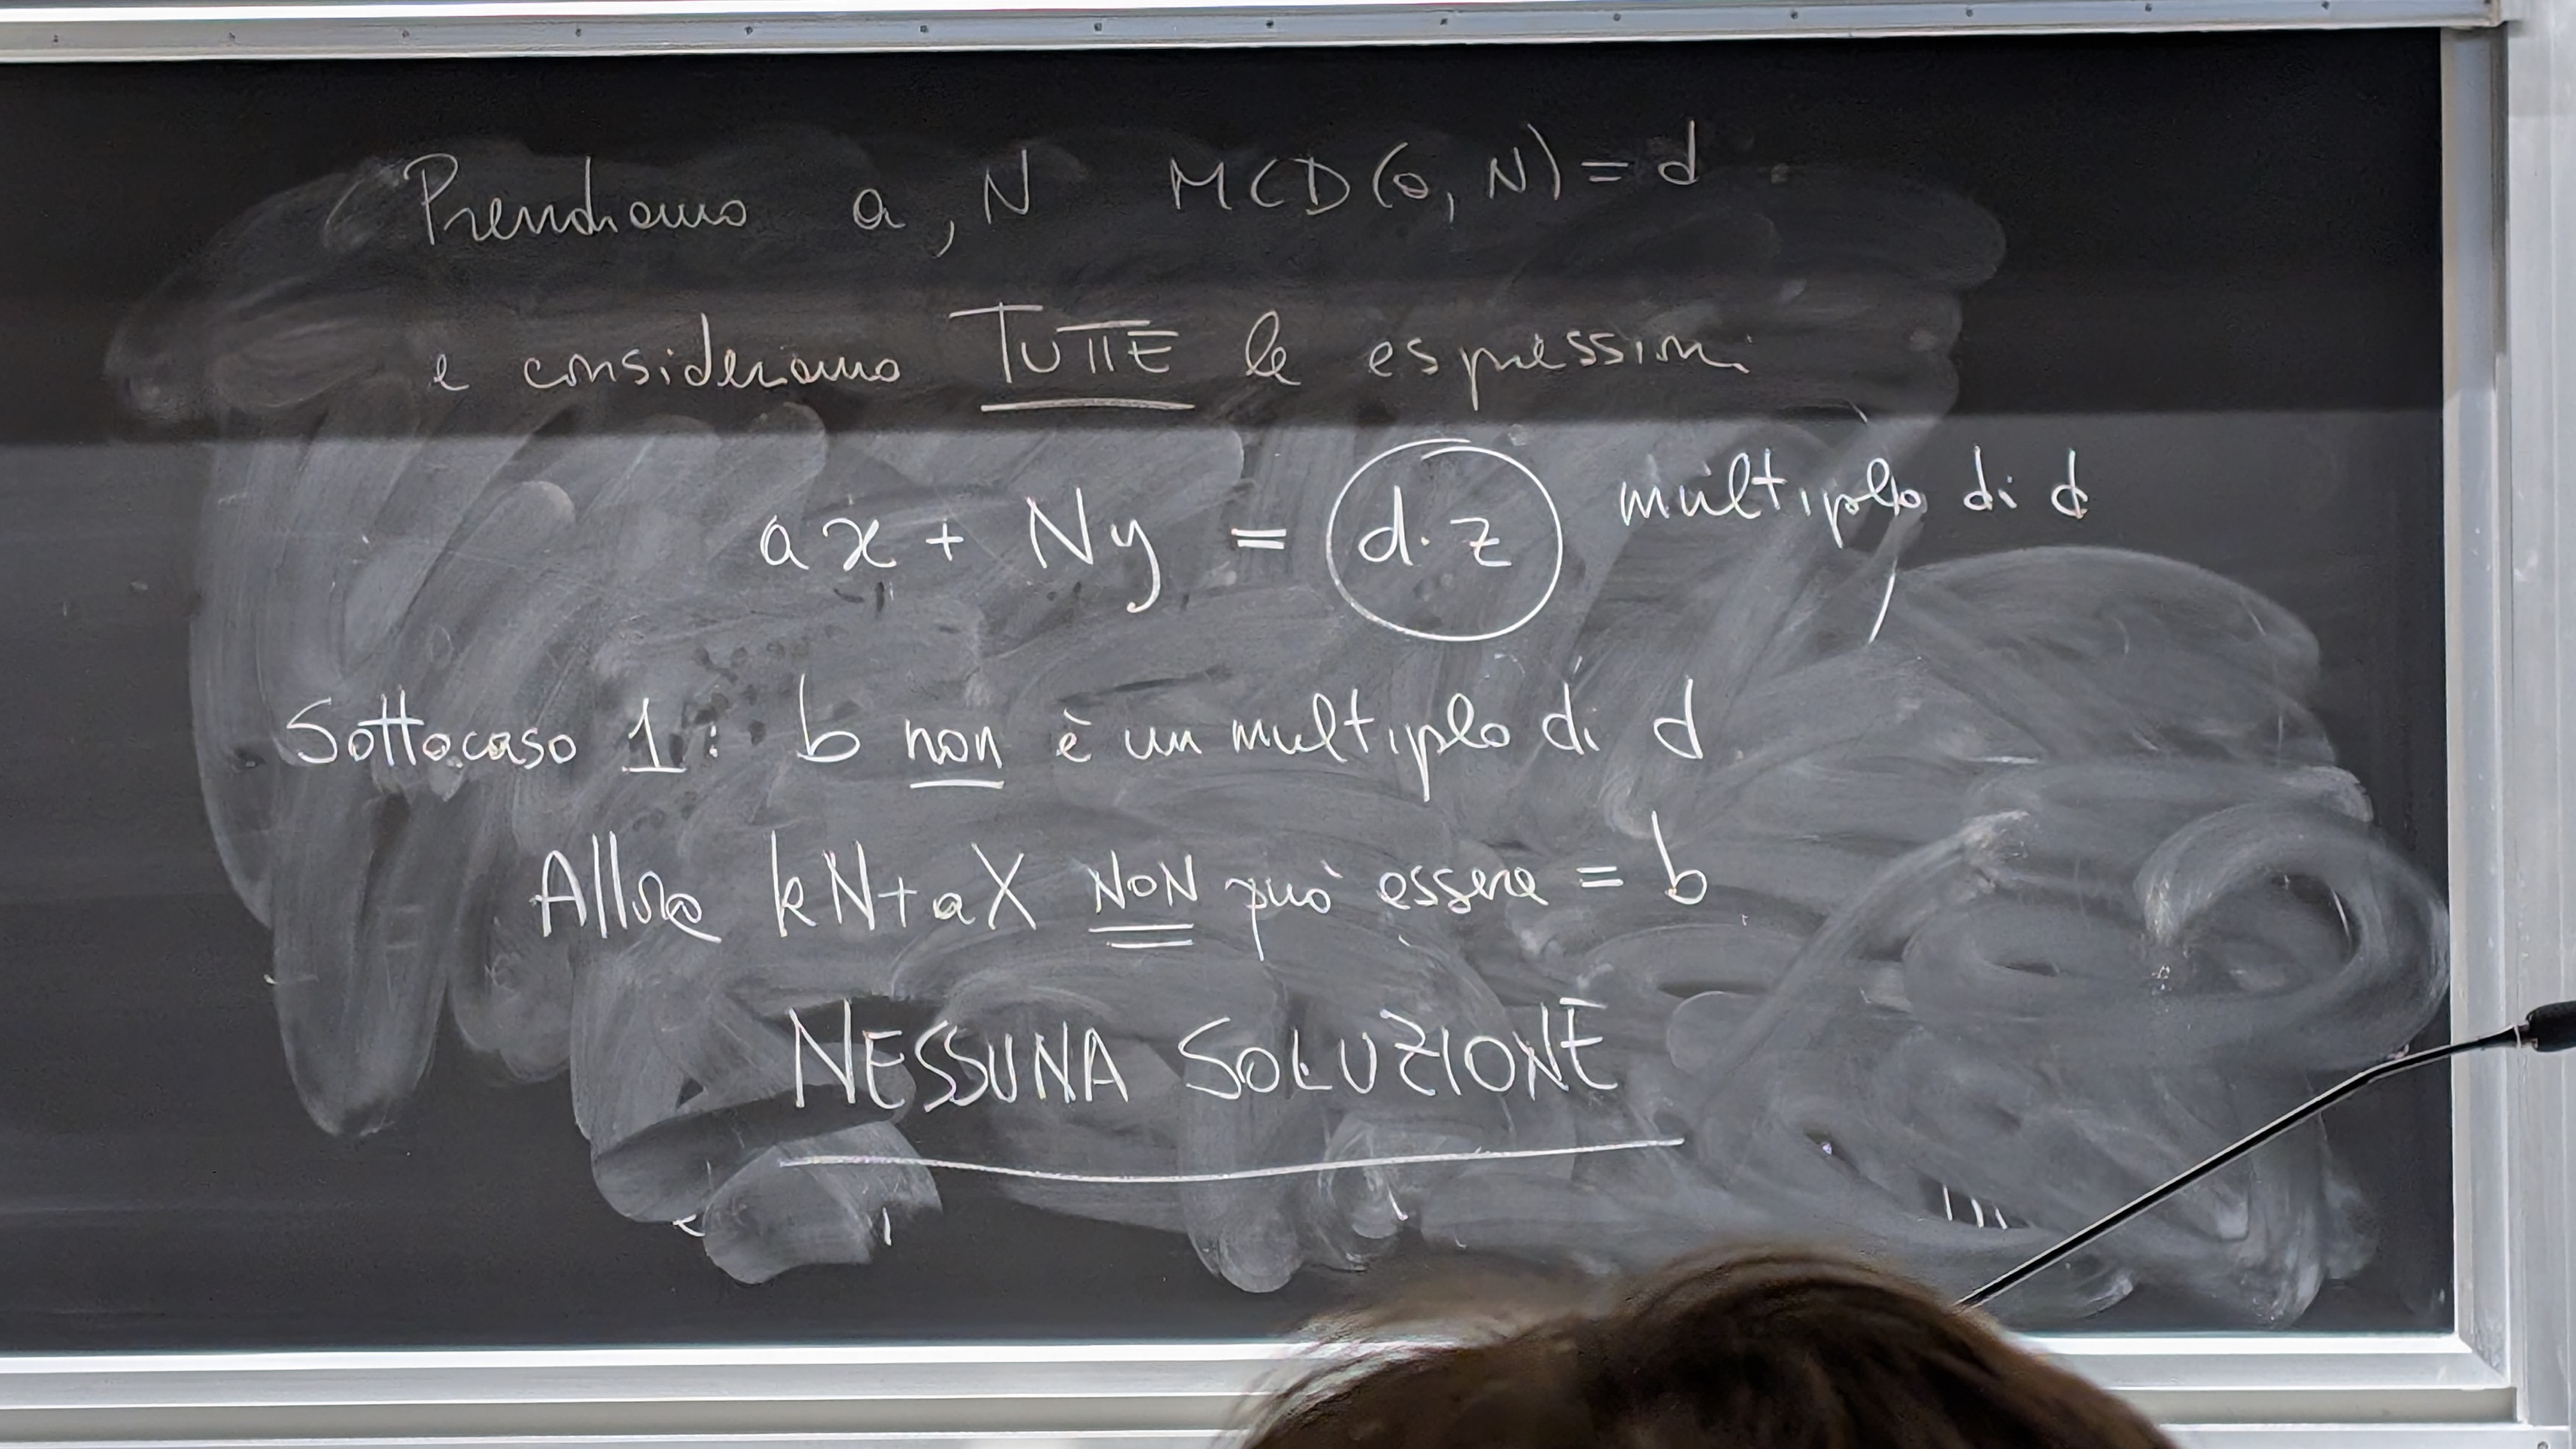 Prendiamo a, N MCD(a, N) = d
e consideriamo TUTTE le espressioni
ax + Ny = d·z multiplo di d
Sottocaso 1: b non è un multiplo di d
Allora kN+aX NON può essere = b
NESSUNA SOLUZIONE